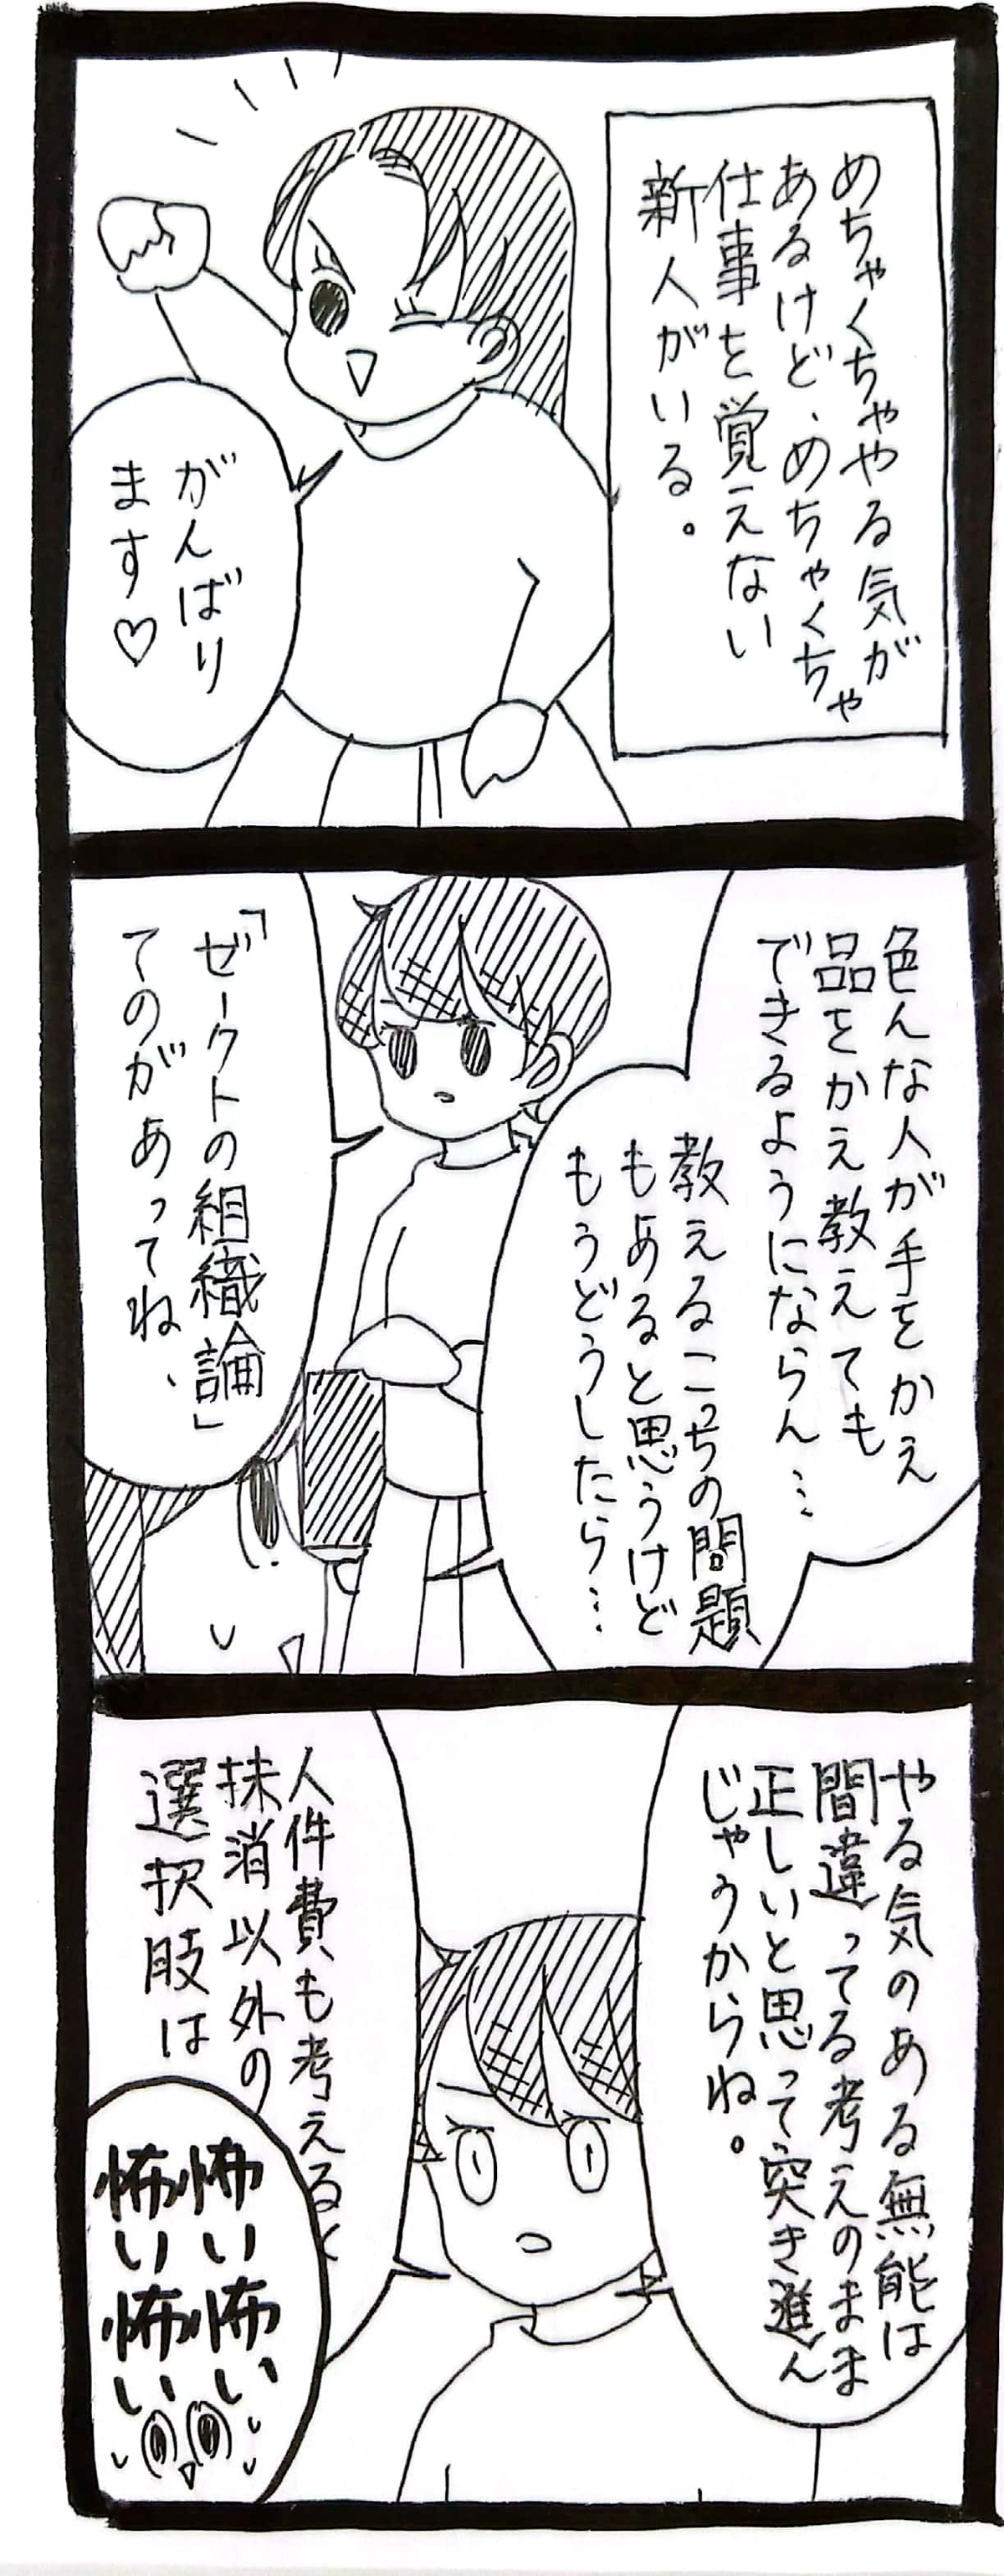 めちゃくちゃやる気が
あるけど、めちゃくちゃ
仕事を覚えない
新人がいる。
がんばり
ます♡
色んな人が手をかえ
品をかえ教えても
できるようにならん…
教えるこっちの問題
もあると思うけど
もうどうしたら…
「ゼークトの組織論」
てのがあってね、
やる気のある無能は
間違ってる考えのまま
正しいと思って突き進ん
じゃうからね。
人件費も考えると
抹消以外の
選択肢は
怖い怖い
怖い怖い